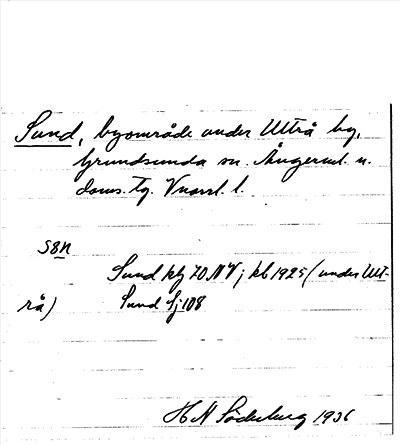 Sund, byområde under Utrå by,
Grundsunda sn. Ångerml. n.
doms. tg. Vnorrl. l.
S8n
Sund ktj 70 NV; kb 1925 (under Ut-
rå) Sund Sj 108
H N Söderberg 1936